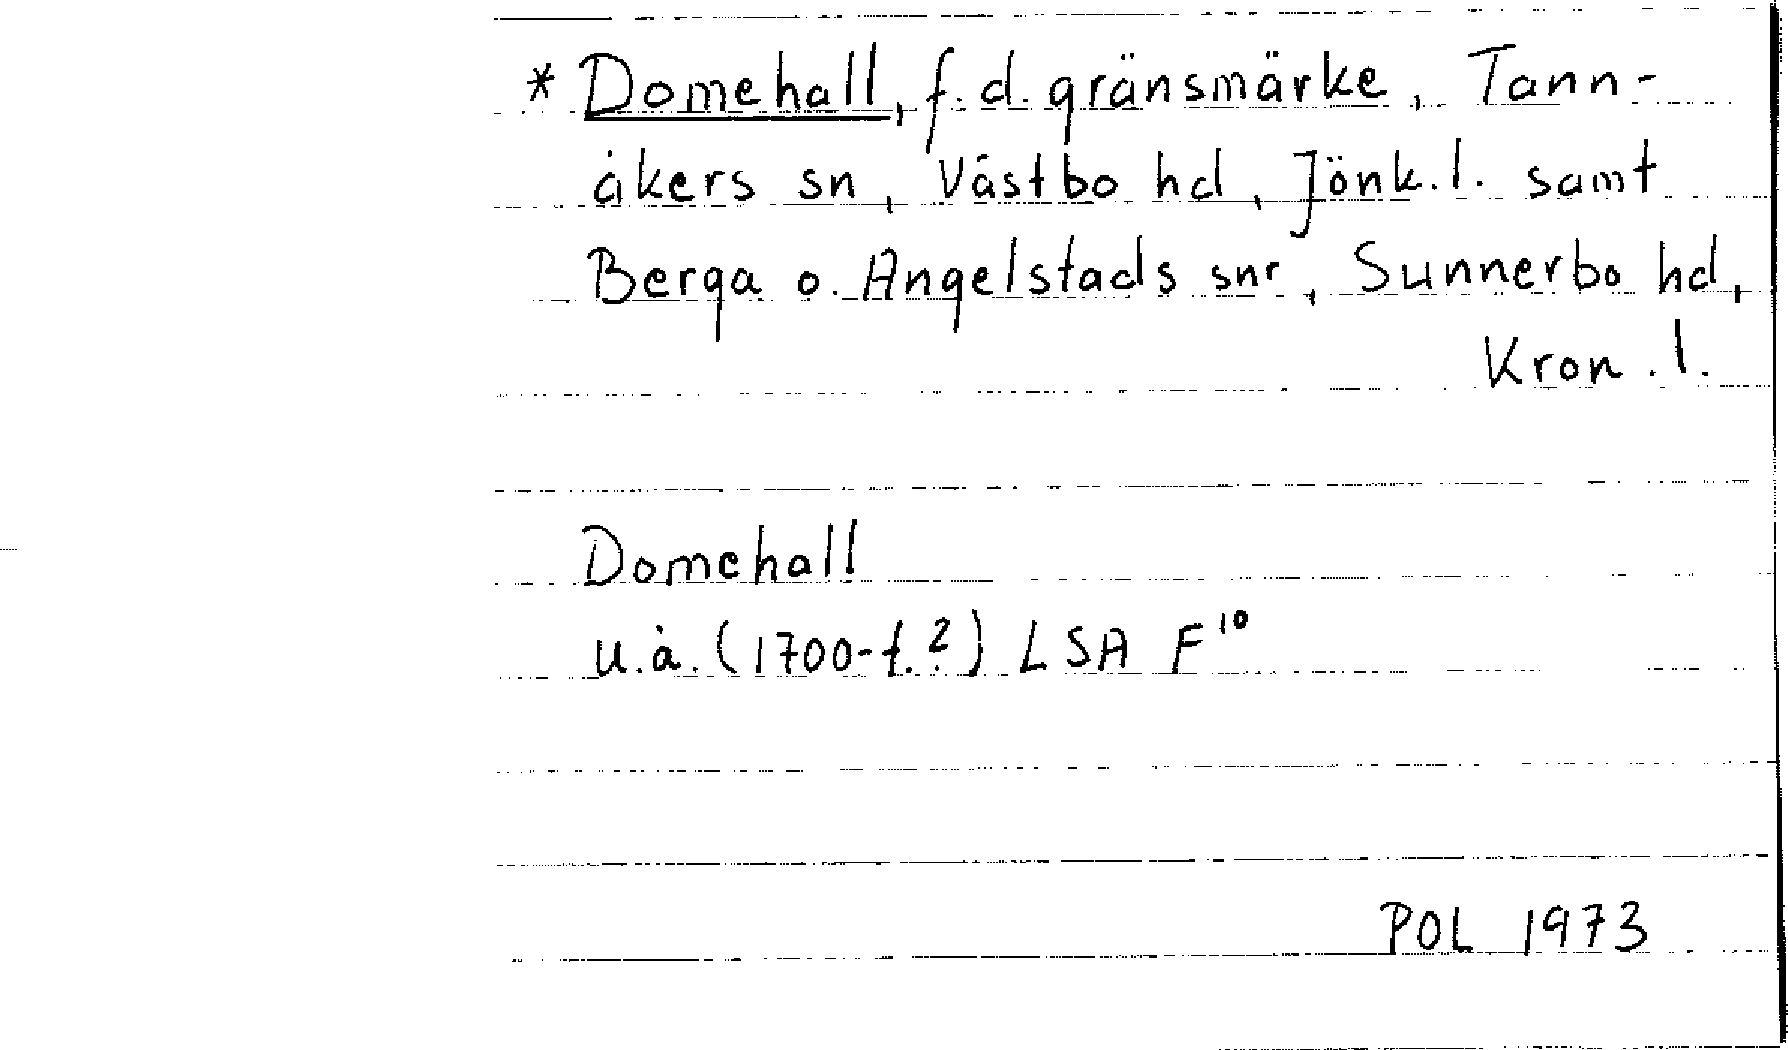 * Domehall, f.d. gränsmärke, Tann-
åkers sn, Västbo hd, Jönk.l. samt
Berga o. Angelstads snr, Sunnerbo hd,
Kron.l.
Domehall
u.å. (1700-t.?) LSA F¹⁰
POL 1973